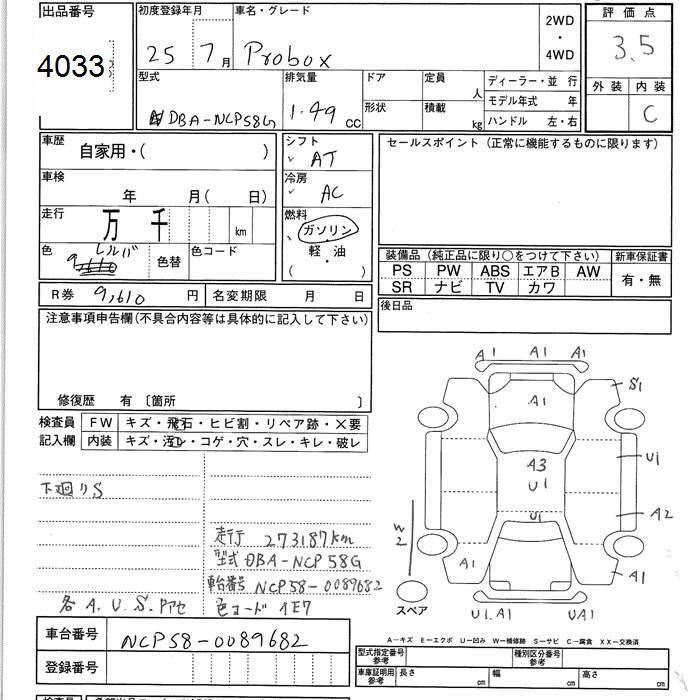 出品番号 初度登録年月 車名・グレード 2WD・4WD 評価点
4033 25 7月 Probox 3.5
型式 排気量 ドア 定員 人 ディーラー・並行 外装 内装
形状 積載 kg モデル年式 年
DBA-NCP58G 1.49 cc ハンドル 左・右 C
車歴 自家用・( ) シフト AT セールスポイント (正常に機能するものに限ります)
車検 年 月( 日) 冷房 AC
走行 万 千 km 燃料 ガソリン
軽・油
( )
色 シルバ 色替 色コード
装備品 (純正品に限り○をつけて下さい) 新車保証書
PS PW ABS エアB AW 有・無
SR ナビ TV カワ
R券 9,610 円 名変期限 月 日 後日品
注意事項申告欄(不具合内容等は具体的に記入して下さい)
修復歴 有 〔箇所 〕
検査員 FW キズ・飛石・ヒビ割・リペア跡・×要
記入欄 内装 キズ・汚レ・コゲ・穴・スレ・キレ・破レ
A1 A1 A1
A1 S1
A3 U1
U1
U1 A2
W2
A1 A1
スペア
U1.A1 UA1
下廻りS
走行 273187km
型式 DBA-NCP58G
車台番号 NCP58-0089682
各A.U.S.アリ 色コード 1E7
車台番号 NCP58-0089682
登録番号
A−キズ E−エクボ U−凹み W−補修跡 S−サビ C−腐食 XX−交換済
型式指定番号 参考 種別区分番号 参考
車庫証明用 参考 長さ cm 幅 cm 高さ cm